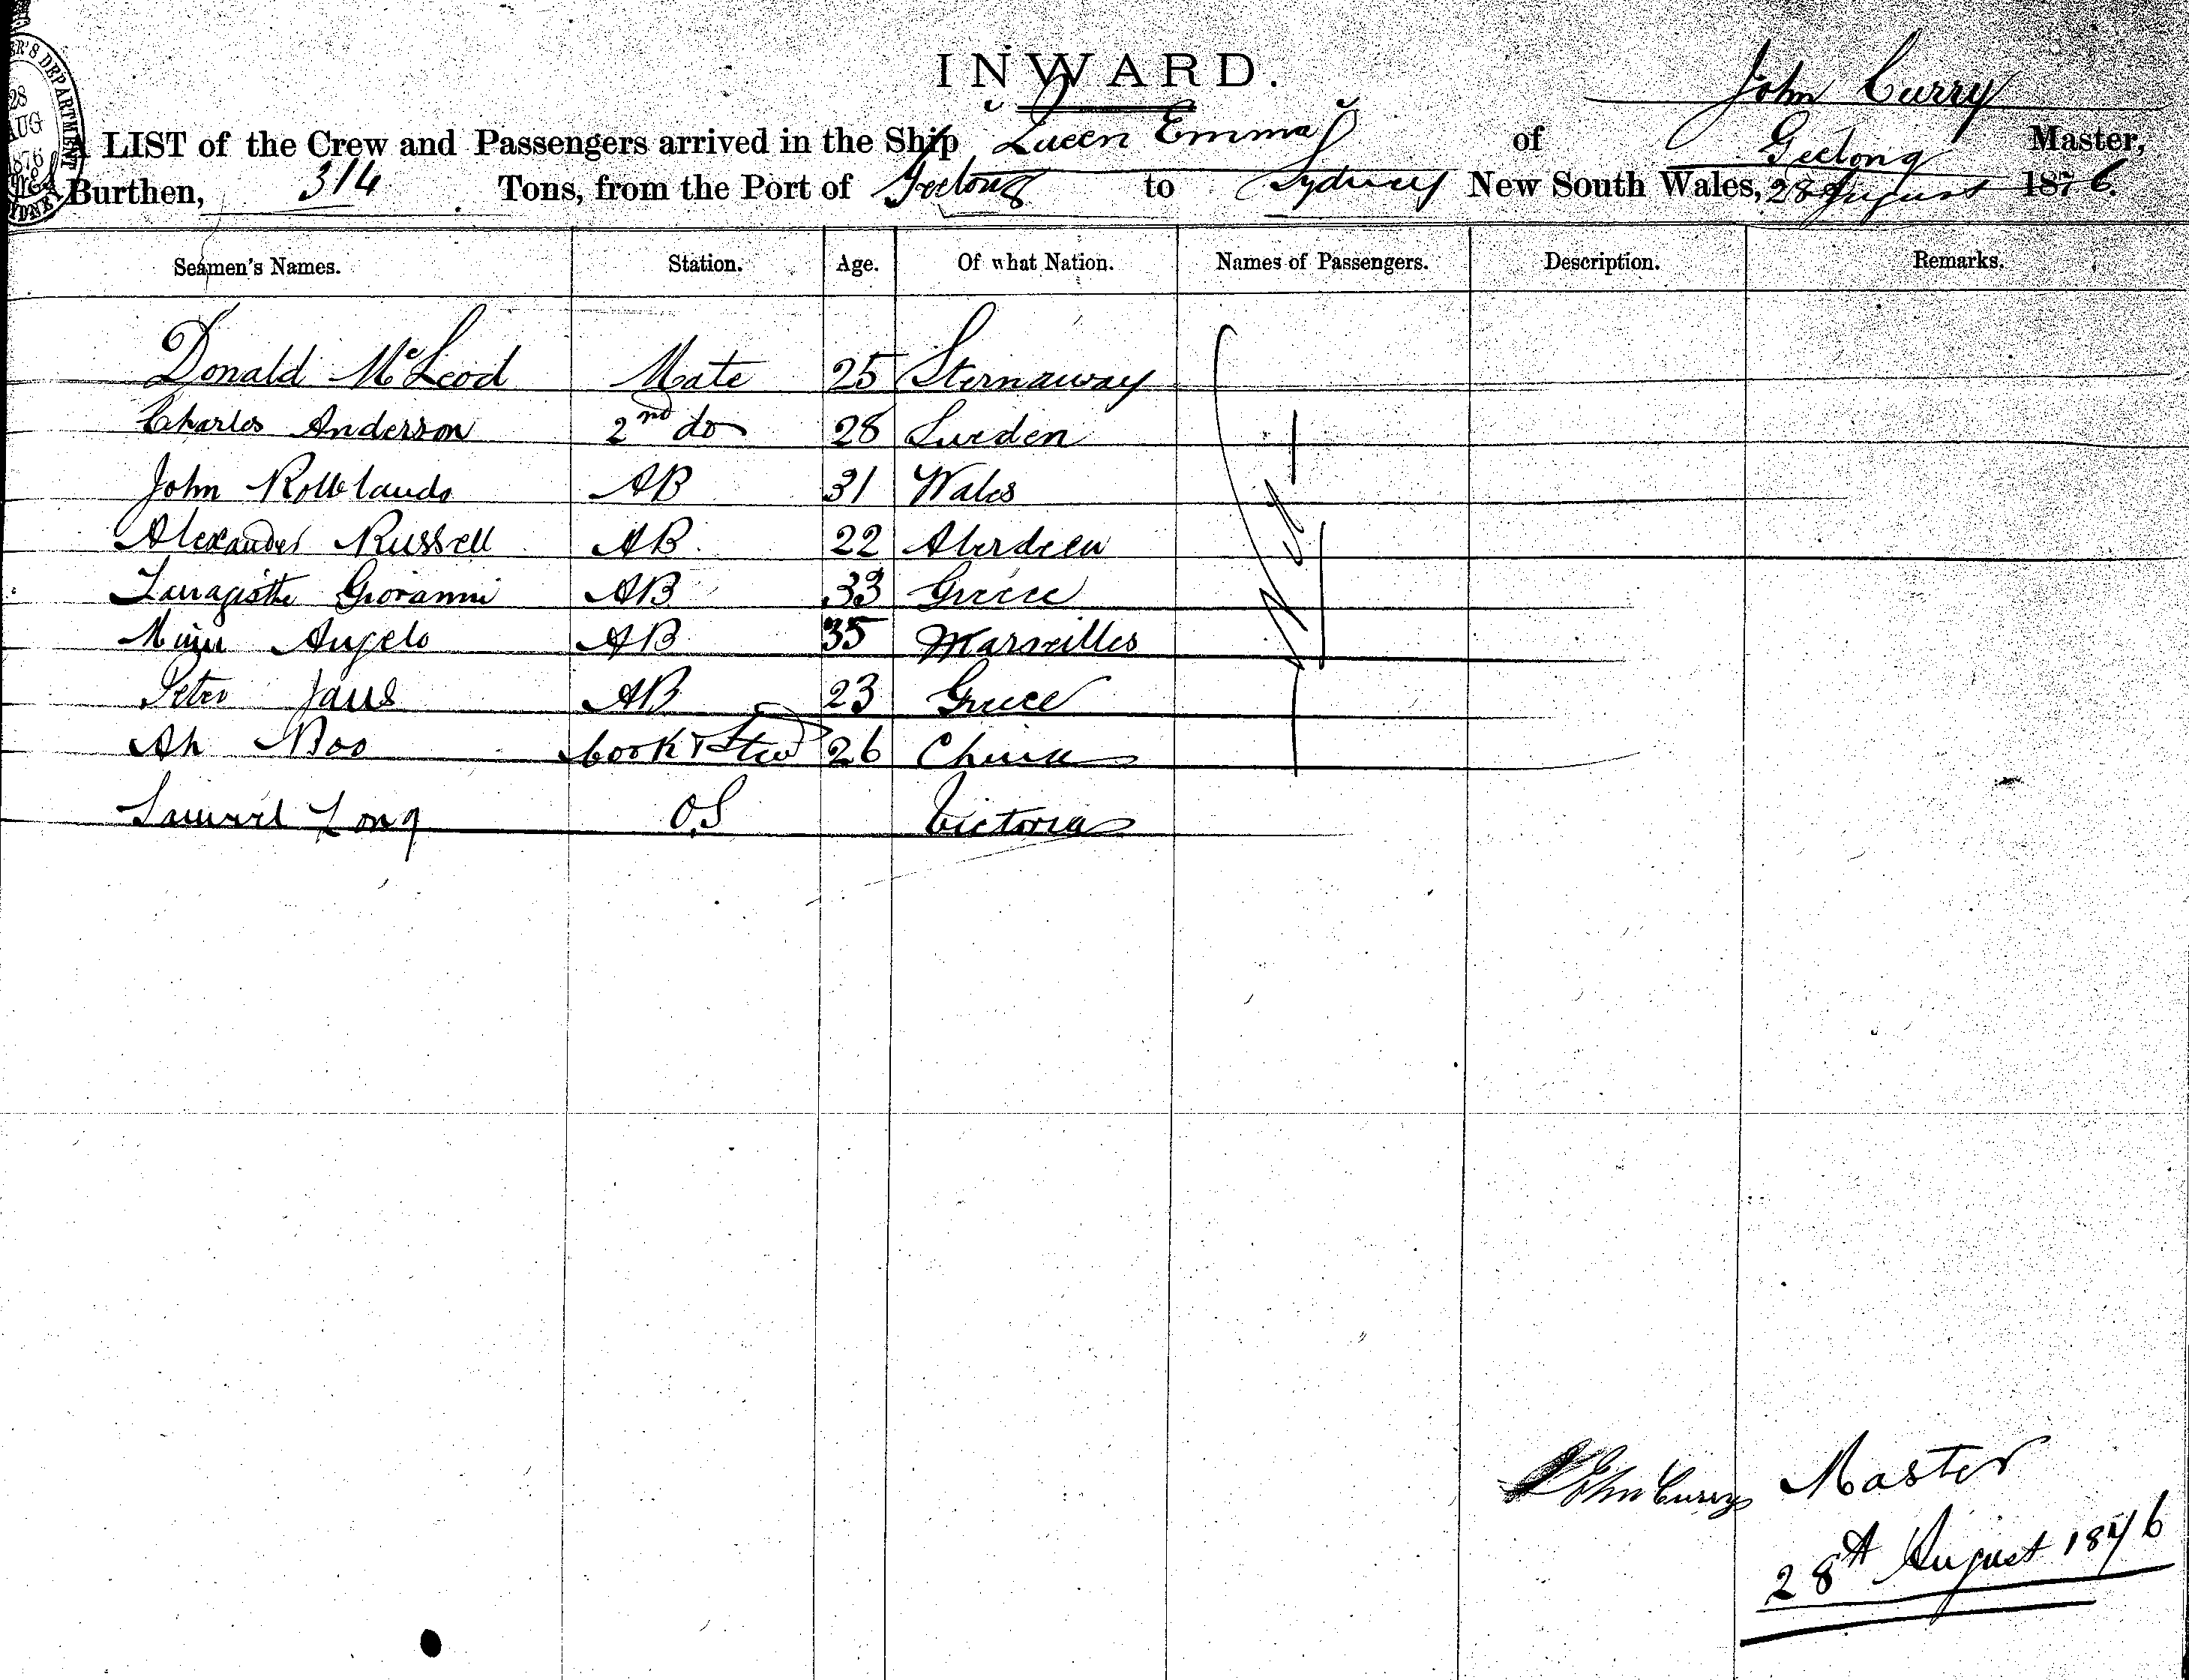 INWARD.
John Curry
A LIST of the Crew and Passengers arrived in the Ship Queen Emma of Geelong Master,
Burthen, 314 Tons, from the Port of Geelong to Sydney New South Wales, 28 August 1876.
28
AUG
1876
Seamen's Names. Station. Age. Of what Nation. Names of Passengers. Description. Remarks.
Donald McLeod Mate 25 Stornaway
Charles Anderson 2nd do 28 Sweden
John Rowlands AB 31 Wales
Alexander Russell AB 22 Aberdeen
Giovanni AB 33 Greece
Angelo AB 35 Marseilles
Peter AB 23 Greece
Ah Boo Cook & Stewd 26 China
Samuel Long O.S Victoria
John Curry Master
28th August 1876